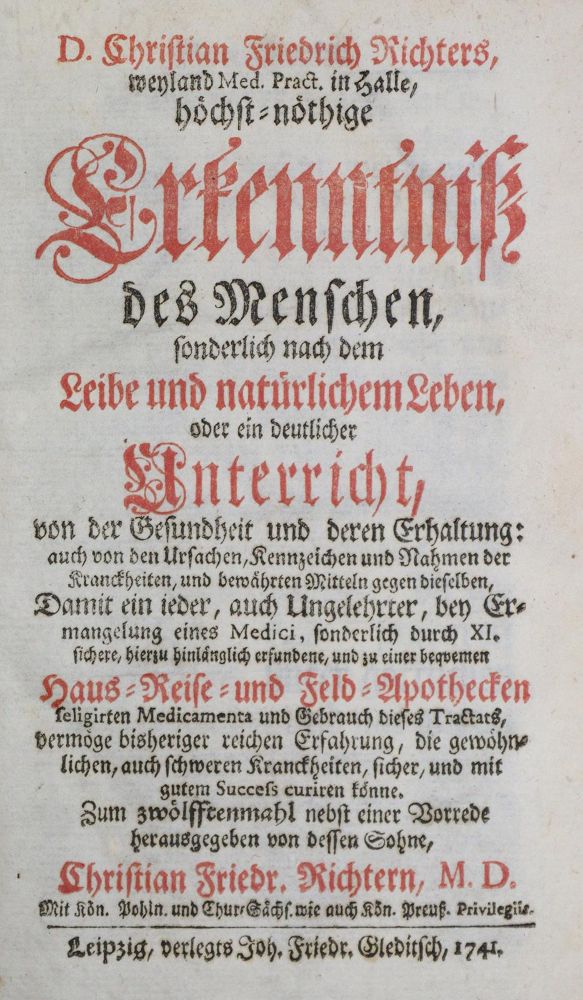 D. Christian Friedrich Richters,
weyland Med. Pract. in Halle,
höchst-nöthige
Erkenntniß
des Menschen,
sonderlich nach dem
Leibe und natürlichem Leben,
oder ein deutlicher
Unterricht,
von der Gesundheit und deren Erhaltung:
auch von den Ursachen, Kennzeichen und Nahmen der
Kranckheiten, und bewährten Mitteln gegen dieselben,
Damit ein ieder, auch Ungelehrter, bey Er-
mangelung eines Medici, sonderlich durch XI.
sichere, hierzu hinlänglich erfundene, und zu einer beqvemen
Haus-Reise-und Feld-Apothecken
seligirten Medicamenta und Gebrauch dieses Tractats,
vermöge bisheriger reichen Erfahrung, die gewöhn-
lichen, auch schweren Kranckheiten, sicher, und mit
gutem Success curiren könne.
Zum zwölfftenmahl nebst einer Vorrede
herausgegeben von dessen Sohne,
Christian Friedr. Richtern, M. D.
Mit Kön. Pohln. und Chur-Sächs. wie auch Kön. Preuß. Privilegiis.
Leipzig, verlegts Joh. Friedr. Gleditsch, 1741.